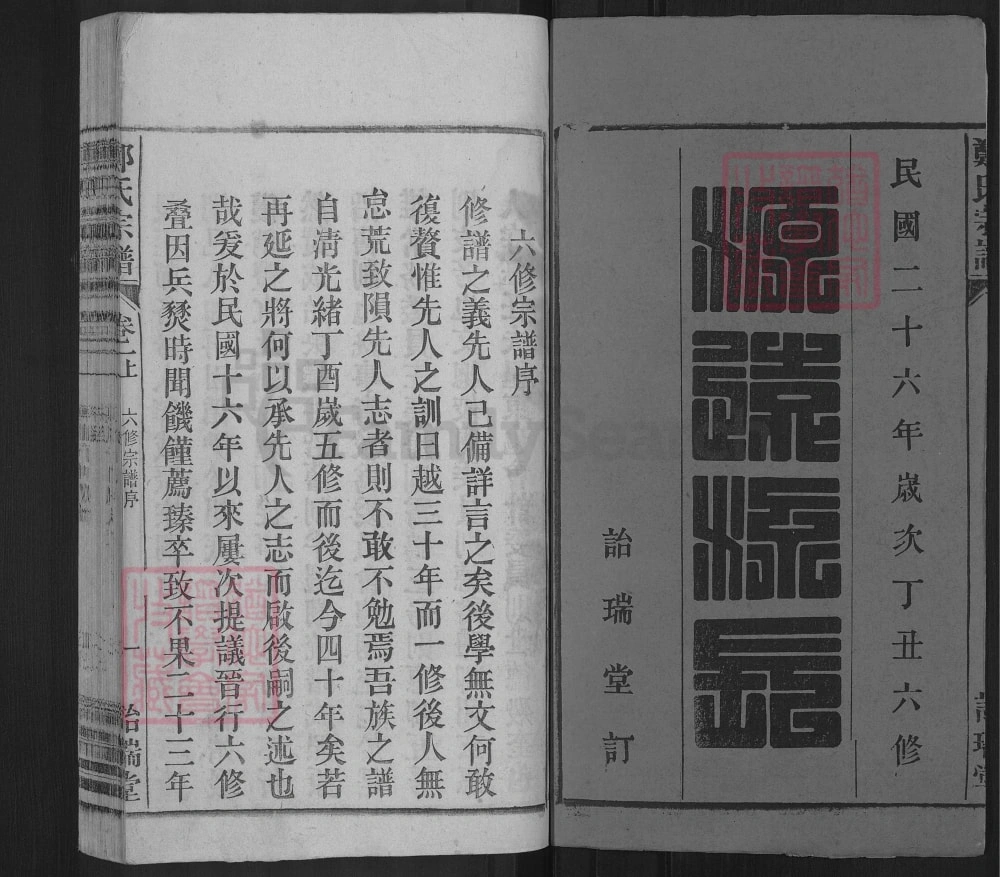 鄭氏宗譜
民國二十六年歲次丁丑六修
源遠流長
詒瑞堂訂
六修宗譜序
修譜之義先人已備詳言之矣後學無文何敢
復贅惟先人之訓曰越三十年而一修後人無
怠荒致隕先人志者則不敢不勉焉吾族之譜
自清光緒丁酉歲五修而後迄今四十年矣若
再延之將何以承先人之志而啟後嗣之述也
哉爰於民國十六年以來屢次提議晉行六修
疊因兵燹時聞饑饉薦臻卒致不果二十三年
鄭氏宗譜
卷之上
六修宗譜序
一
詒瑞堂